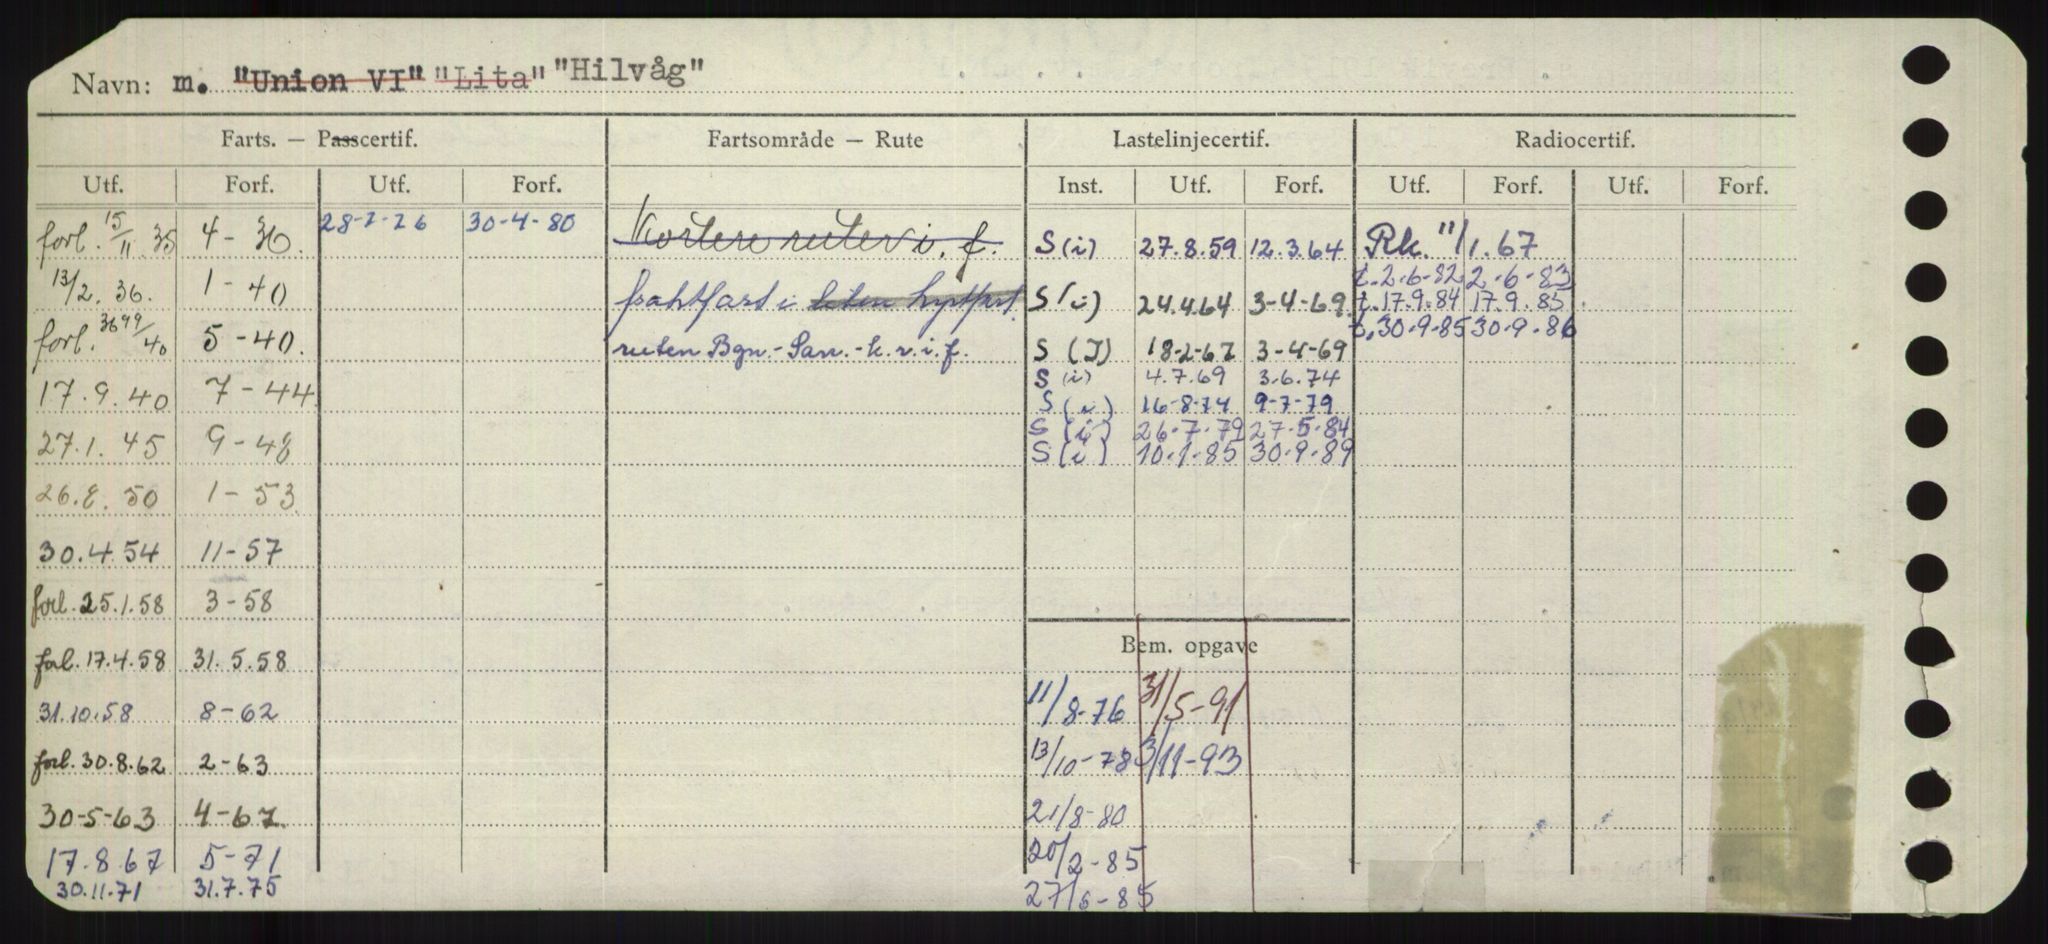 Navn: m. "Union VI" "Lita" "Hilvåg"
Farts. — Passcertif. Fartsområde — Rute Lastelinjecertif. Radiocertif.
Utf. Forf. Utf. Forf. Inst. Utf. Forf. Utf. Forf. Utf. Forf.
forl. 15/11. 35 4 - 36. 28-7-76 30-4-80 Kortere ruter i. f. S (i) 27.8.59 12.3.64 Rk. 11/1.67
t. 2.6-82 2.6-83
13/2. 36. 1 - 40 fraktfart i liten kystfart. S (i) 24.4.64 3-4-69 t. 17.9.84 17.9.85
t. 30.9.85 30.9.86
forl. 3699/40 5 - 40. ruten Bgn.-San.-k.v.i.f. S (I) 18-2-67 3-4-69
S (i) 4.7.69 3.6.74
17.9.40 7 - 44 S (i) 16-8-74 9-7-79
27.1.45 9 - 48 S (i) 26.7.79 27.5.84
S (i) 10.1.85 30.9.89
26.8.50 1 - 53
30.4.54 11 - 57
forl. 25.1.58 3 - 58
Bem. opgave
forl. 17.4.58 31.5.58
31.10.58 8 - 62 11/8-76 31/5-91
forl. 30.8.62 2 - 63 13/10-78 3/11-93
30-5-63 4 - 67 21/8-80
17.8.67 5 - 71 20/2-85
30.11.71 31.7.75 27/6-85